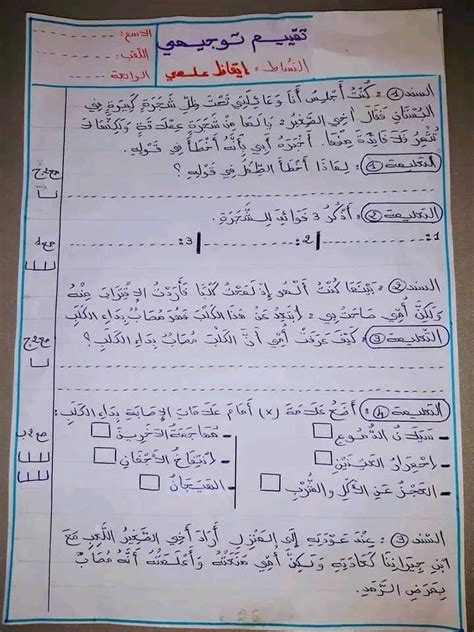 تقييم توجيهي
الاسم:
اللقب:
النشاط: إيقاظ علمي
الرابعة
السند 1: كُنْتُ أَجْلِسُ أَنَا وَعَائِلَتِي تَحْتَ ظِلِّ شَجَرَةٍ كَبِيرَةٍ فِي
البُسْتَانِ فَقَالَ أَخِي الصَّغِيرُ: يَا لَهَا مِنْ شَجَرَةٍ عِمْلَاقَةٍ وَلَكِنَّهَا لَا
تُثْمِرُ فَلَا فَائِدَةَ مِنْهَا. أَخْبَرَهُ أَبِي بِأَنَّهُ أَخْطَأَ فِي قَوْلِهِ.
التعليمة 1: لِمَاذَا أَخْطَأَ الطِّفْلُ فِي قَوْلِهِ؟
التعليمة 2: أَذْكُرُ 3 فَوَائِدَ لِلشَّجَرَةِ.
1: 2: 3:
السند 2: بَيْنَمَا كُنْتُ أَلْهُو إِذْ لَمَحْتُ كَلْبًا فَأَرَدْتُ الاِقْتِرَابَ مِنْهُ
وَلَكِنَّ أُمِّي صَاحَتْ بِي: اِبْتَعِدْ عَنْ هَذَا الكَلْبِ فَهُوَ مُصَابٌ بِدَاءِ الكَلَبِ
التعليمة 3: كَيْفَ عَرَفَتْ أُمِّي أَنَّ الكَلْبَ مُصَابٌ بِدَاءِ الكَلَبِ؟
التعليمة 4: أَضَعُ عَلَامَةَ (x) أَمَامَ عَلَامَاتِ الإِصَابَةِ بِدَاءِ الكَلَبِ:
- سَيَلَانُ الدُّمُوعِ - مُهَاجَمَةُ الآخَرِينَ
- احْمِرَارُ العَيْنَيْنِ - اِنْتِفَاخُ الأَجْفَانِ
- العَجْزُ عَنِ الأَكْلِ وَالشُّرْبِ - الهَيَجَانُ
السند 3: عِنْدَ عَوْدَتِهِ إِلَى المَنْزِلِ أَرَادَ أَخِي الصَّغِيرُ اللَّعِبَ مَعَ
ابْنِ جِيرَانِنَا كَعَادَتِهِ وَلَكِنَّ أُمِّي مَنَعَتْهُ وَأَعْلَمَتْهُ أَنَّهُ مُصَابٌ
بِمَرَضِ الرَّمَدِ.